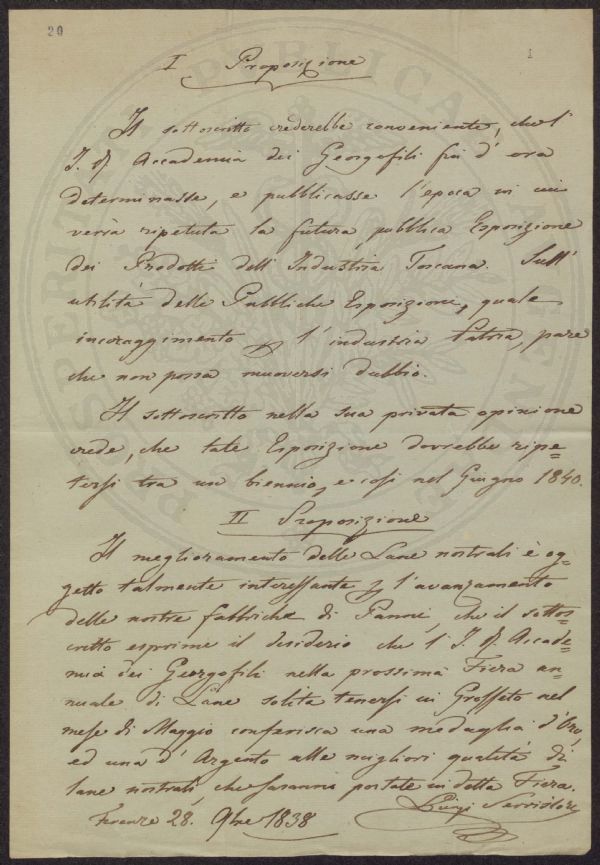 20
1
I Proposizione
Il sottoscritto crederebbe conveniente, che l'
I. e R. Accademia dei Georgofili fin d'ora
determinasse, e pubblicasse l'epoca in cui
verrà ripetuta la futura pubblica Esposizione
dei Prodotti dell'Industria Toscana. Sull'
utilità delle Pubbliche Esposizioni, quale
incoraggimento per l'industria Patria, pare
che non possa muoversi dubbio.
Il sottoscritto nella sua privata opinione
crede, che tale Esposizione dovrebbe ripe=
tersi tra un biennio, e così nel Giugno 1840.
II Proposizione
Il meglioramento delle Lane nostrali è og=
getto talmente interessante per l'avanzamento
delle nostre fabbriche di Panni, che il sottos=
critto esprime il desiderio che l'I. e R. Accade=
mia dei Georgofili nella prossima Fiera an=
nuale di Lane solita tenersi in Grosseto nel
mese di Maggio conferisca una medaglia d'Oro,
ed una d'Argento alle migliori qualità di
lane nostrali, che saranno portate in detta Fiera.
Luigi Serristori
Firenze 28. 9bre 1838
PROSPERITATI PUBLICAE AUGENDAE